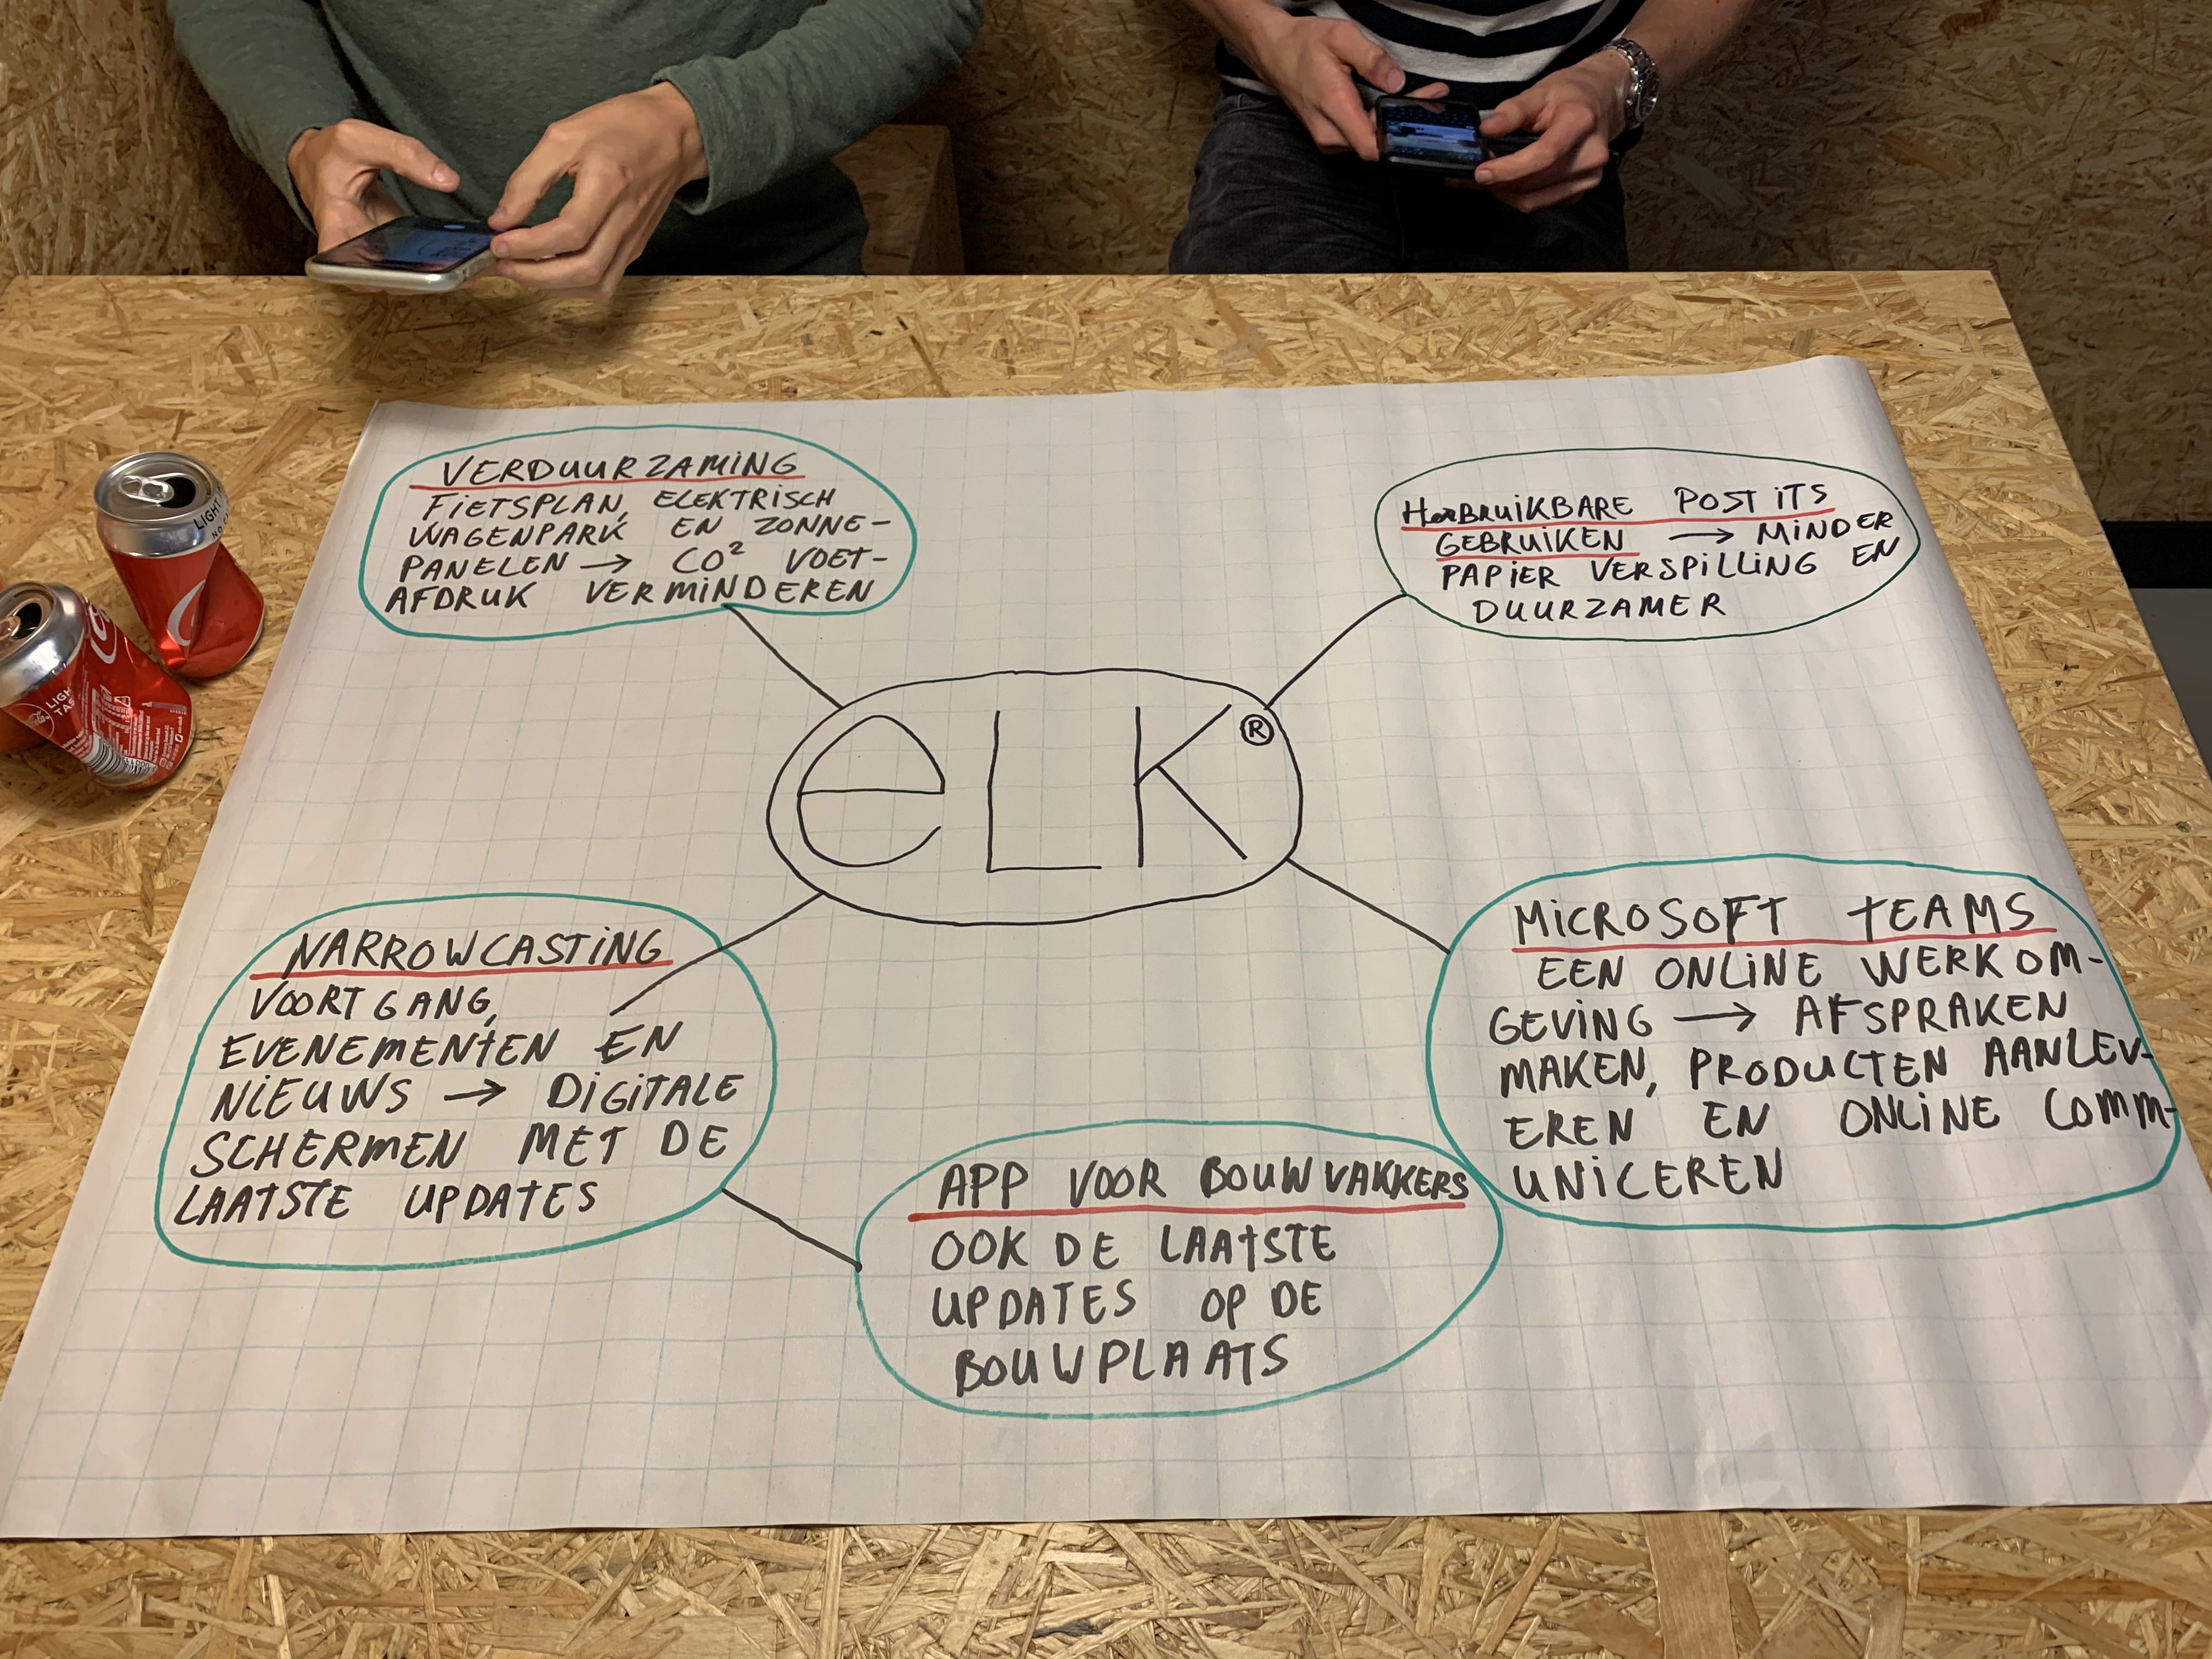 VERDUURZAMING
FIETSPLAN, ELEKTRISCH
WAGENPARK EN ZONNE-
PANELEN → CO² VOET-
AFDRUK VERMINDEREN
HERBRUIKBARE POST ITS
GEBRUIKEN → MINDER
PAPIER VERSPILLING EN
DUURZAMER
eLK®
NARROWCASTING
VOORTGANG,
EVENEMENTEN EN
NIEUWS → DIGITALE
SCHERMEN MET DE
LAATSTE UPDATES
MICROSOFT TEAMS
EEN ONLINE WERKOM-
GEVING → AFSPRAKEN
MAKEN, PRODUCTEN AANLEV-
EREN EN ONLINE COMM-
UNICEREN
APP VOOR BOUWVAKKERS
OOK DE LAATSTE
UPDATES OP DE
BOUWPLAATS
LIGHT
LIGHT